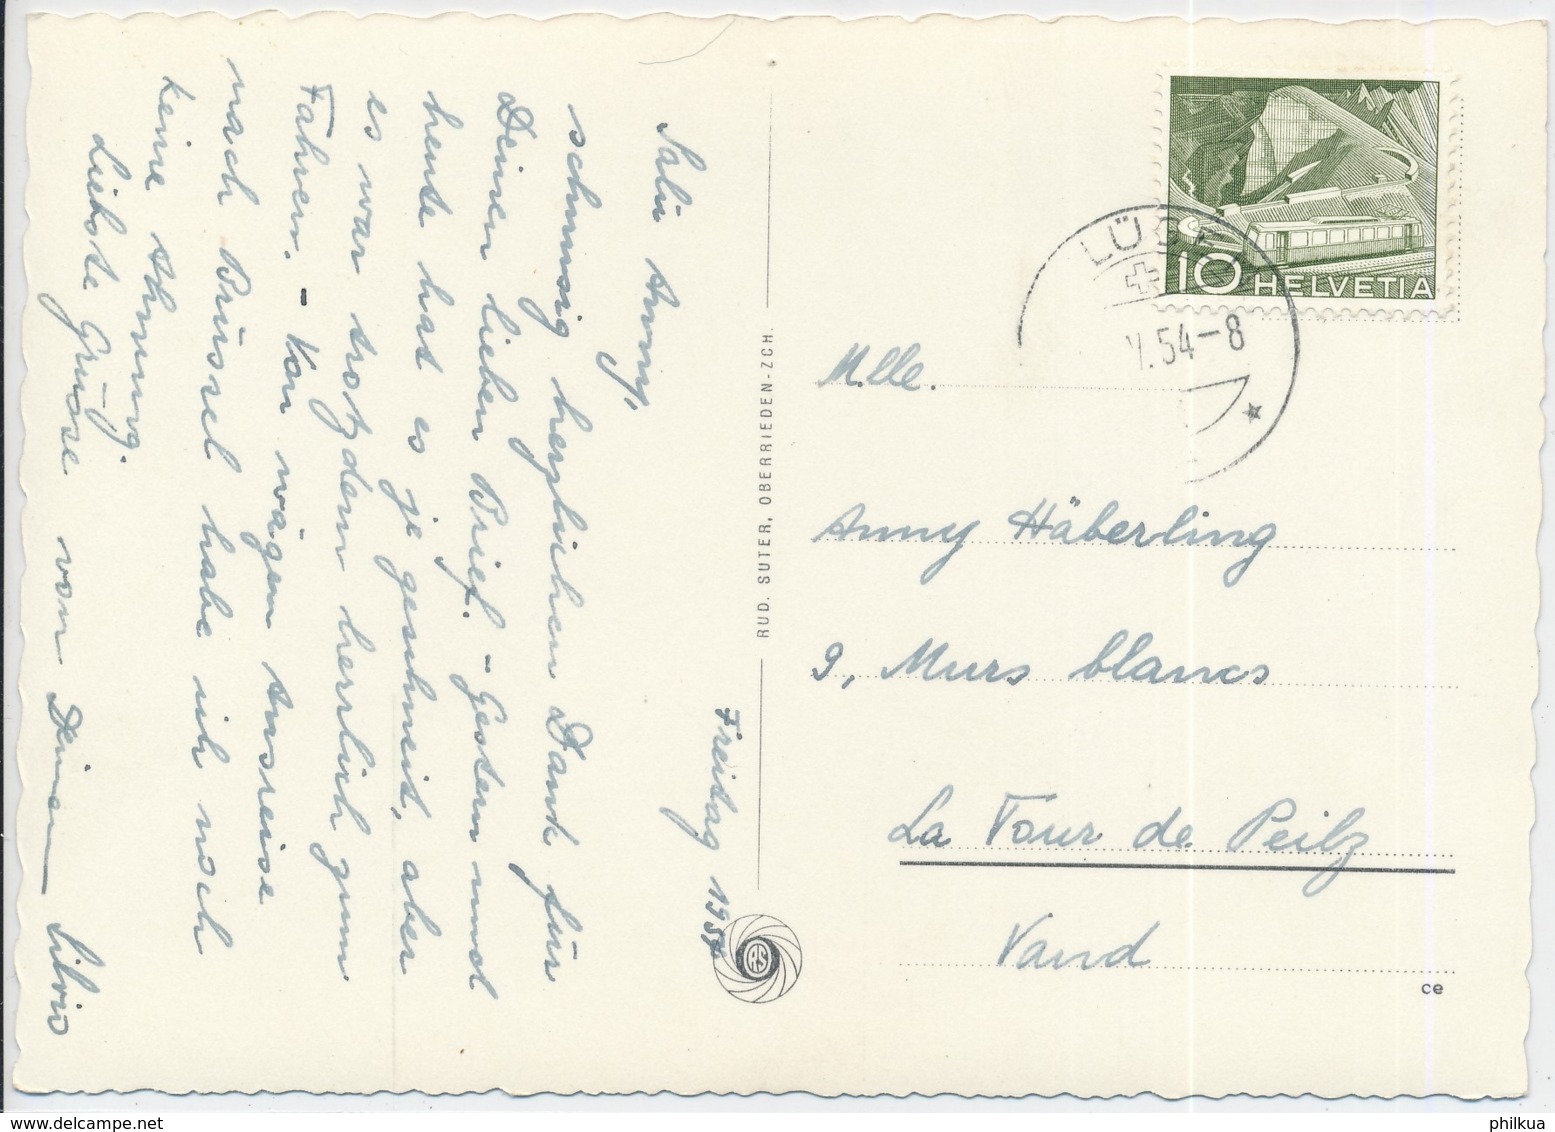 Freitag 1954
Salü Anny,
schmissig herzlichen Dank für
Deinen lieben Brief. - Gestern und
heute hat es je geschneit, aber
es war trotzdem herrlich zum
Fahren. - Von wägen Ausreise
nach Brüssel habe ich noch
keine Ahnung.
Liebste Grüsse von Deinem Silvio
RUD. SUTER, OBERRIEDEN-ZCH.
RS
10 HELVETIA
V.54-8
Mlle.
Anny Häberling
9, Murs blancs
La Tour de Peilz
Vaud
ce
philkua